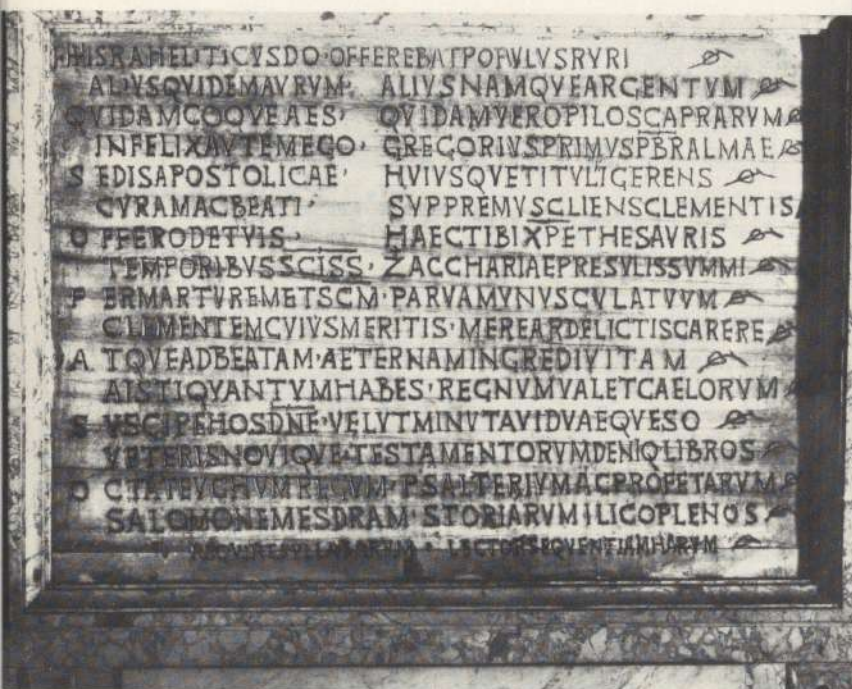 HISRAHELITICVSDO·OFFEREBATPOPVLVSRVRI
ALIVSQVIDEMAVRVM· ALIVSNAMQVEARGENTVM
QVIDAMCOQVEAES· QVIDAMVEROPILOSCAPRARVM
INFELIXAVTEMEGO· GREGORIVSPRIMVSPBRALMAE
SEDISAPOSTOLICAE· HVIVSQVETITVLIGERENS
CVRAMACBEATI· SVPPREMVSCLIENSCLEMENTIS
OFFERODETVIS· HAECTIBIXPETHESAVRIS
TEMPORIBVSSCISS· ZACCHARIAEPRESVLISSVMMI
PERMARTVREMETSCM·PARVAMVNVSCVLATVVM
CLEMENTEMCVIVSMERITIS·MEREARDELICTISCARERE
ATQVEADBEATAM·AETERNAMINGREDIVITAM
AISTIQVANTVMHABES·REGNVMVALETCAELORVM
SVSCIPEHOSDNE·VELVTMINVTAVIDVAEQVESO
VETERISNOVIQVE·TESTAMENTORVMDENIQLIBROS
OCTATEVCHVMREGVM·PSALTERIVMACPROFETARVM
SALOMONEMESDRAM·STORIARVMILICOPLENOS
SYLLABARVM·LECTORSEQVENTIAMHARVM